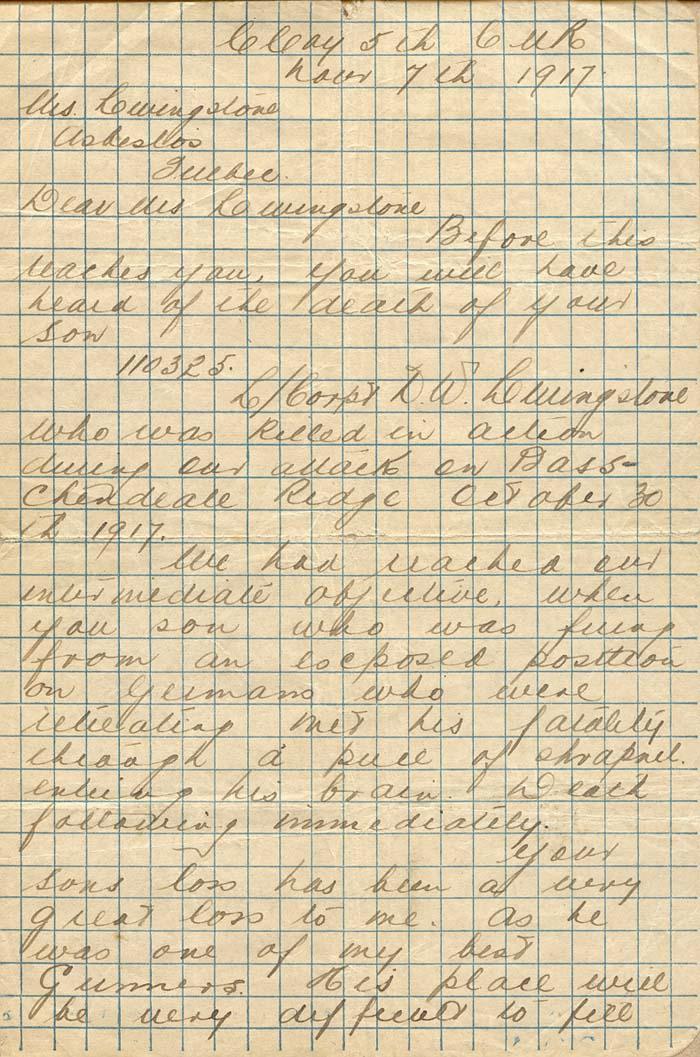 C Coy 5th C M R
Nov 7th 1917.
Mrs. Livingstone
Asbestos
Quebec.
Dear Mrs Livingstone
Before this
reaches you, you will have
heard of the death of your
son
110325.
L/Corpt D. W. Livingstone
who was killed in action
during our attack on Pass-
chendeale Ridge October 30
th 1917.
We had reached our
intermediate objective, when
you son who was firing
from an exposed position
on Germans who were
retreating met his fatality
through a piece of shrapnel.
entering his brain. Death
following immediately.
Your
sons loss has been a very
great loss to me. as he
was one of my best
Gunners. His place will
be very difficult to fill